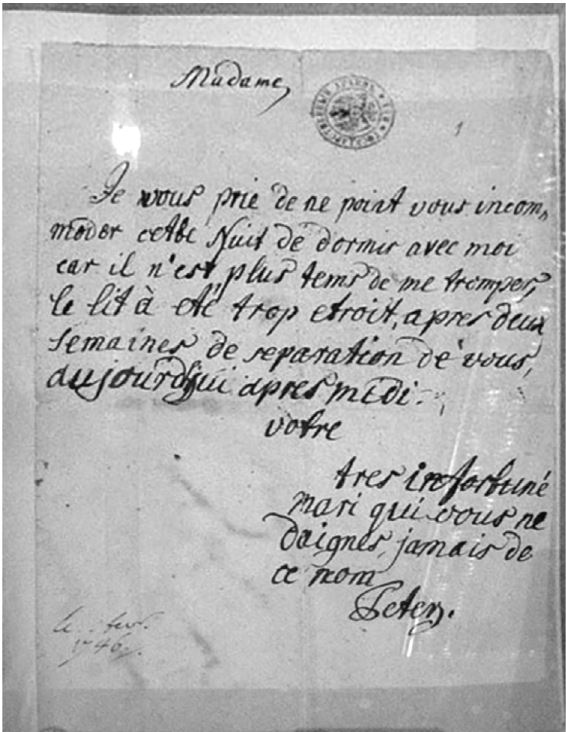 Madame,
1
Je vous prie de ne point vous incom,
moder cette Nuit de dormir avec moi
car il n'est plus tems de me tromper,
le lit à eté trop etroit, apres deux
semaines de separation de vous,
aujourd'hui apres midi.
votre
tres infortuné
mari qui vous ne
daignes jamais de
ce nom
Peter.
le
1746